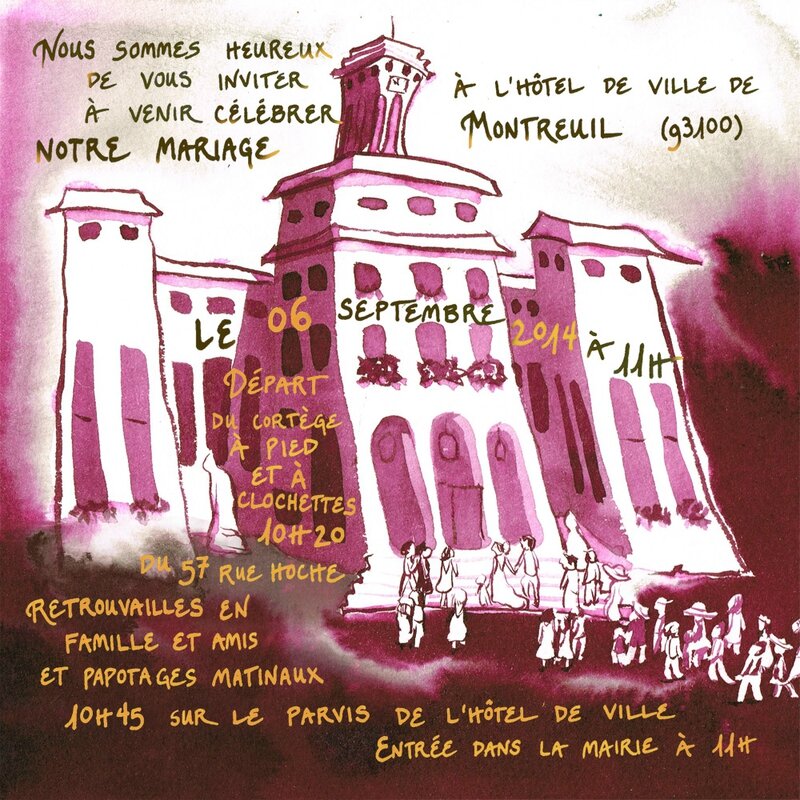 Nous sommes heureux
de vous inviter
à venir célébrer
notre mariage
à l'hôtel de ville de
Montreuil (93100)
Le 06 septembre 2014 à 11H
Départ
du cortège
à pied
et à
clochettes
10H20
du 57 rue Hoche
Retrouvailles en
famille et amis
et papotages matinaux
10H45 sur le parvis de l'hôtel de ville
Entrée dans la mairie à 11H